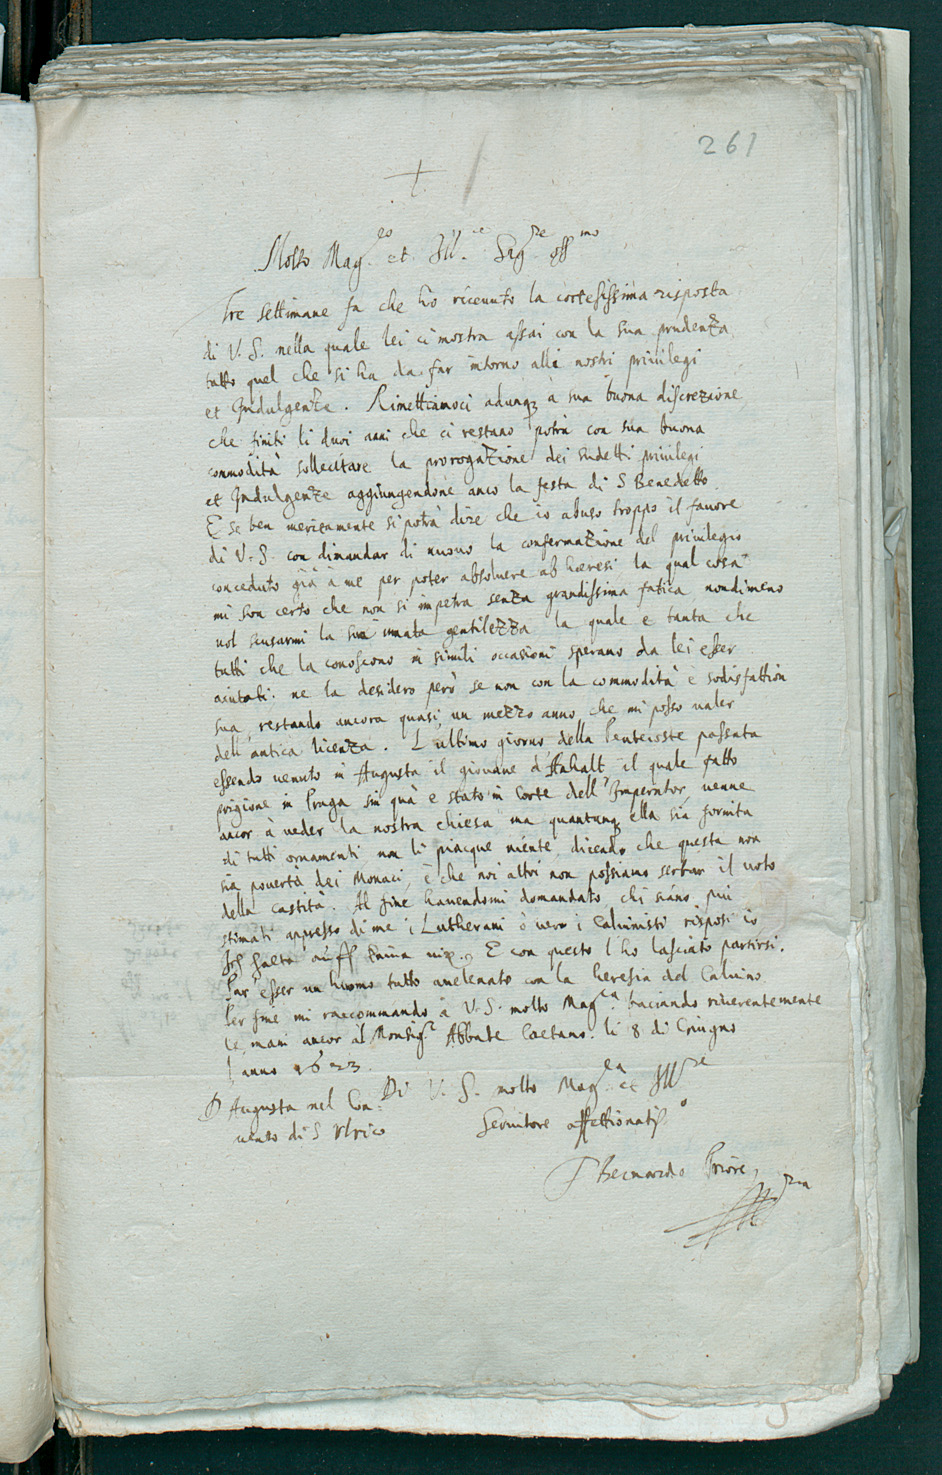 261
+
Molto Mag.co et Ill.re Sig.re oss.mo
Tre settimane fa che hò riceuuto la cortesissima risposta
di V. S. nella quale lei ci mostra assai con la sua prudenza
tutto quel che si ha da far intorno alli nostri priuilegi
et Indulgenze. Rimettiamoci adunq; à sua buona discrezione
che finiti li duoi anni che ci restano potrà con sua buona
commodità sollecitare la prorogazione dei sudetti priuilegi
et Indulgenze aggiungendone anco la festa di S Benedetto.
E se ben meritamente si potrà dire che io abuso troppo il fauore
di V. S. con dimandar di nuouo la confermazione del priuilegio
conceduto già à me per poter absoluere ab hæresi la qual cosa
mi son certo che non si impetra senza grandissima fatica nondimeno
uol scusarmi la sua innata gentilezza la quale e tanta che
tutti che la conoscono in simili occasioni sperano da lei esser
aiutati: ne la desidero però se non con la commodità e sodisfattion
sua, restando ancora quasi un mezzo anno che mi posso ualer
dell antica licenza. L ultimo giorno della Pentecoste passata
essendo uenuto in Augusta il giouane d'Anhalt il quale fatto
prigione in Praga sin quà e stato in Corte dell' Imperator, uenne
ancor à ueder la nostra chiesa ma quantunq; ella sia fornita
di tutti ornamenti non li piacque niente, dicendo che questa non
sia pouertà dei Monaci, è che noi altri non possiamo serbar il uoto
della castità. Al fine hauendomi domandato, chi siano piu
stimati appresso di me i Lutherani ò uero i Caluinisti risposi io
Ich halte auff kainen nix. E con questo l ho lasciato partirsi.
Par' esser un huomo tutto auelenato con la heresia del Caluino.
Per fine mi raccommando à V. S. molto Mag.ca baciando riuerentemente
le mani ancor al Monsig.r Abbate Caetano. li 8 di Giugno
l anno 1623.
Di V. S. molto Mag.ca et Ill.re
D Augusta nel Con-
uento di S Vlrico
Seruitore affettionatiss.o
F Bernardo Priore